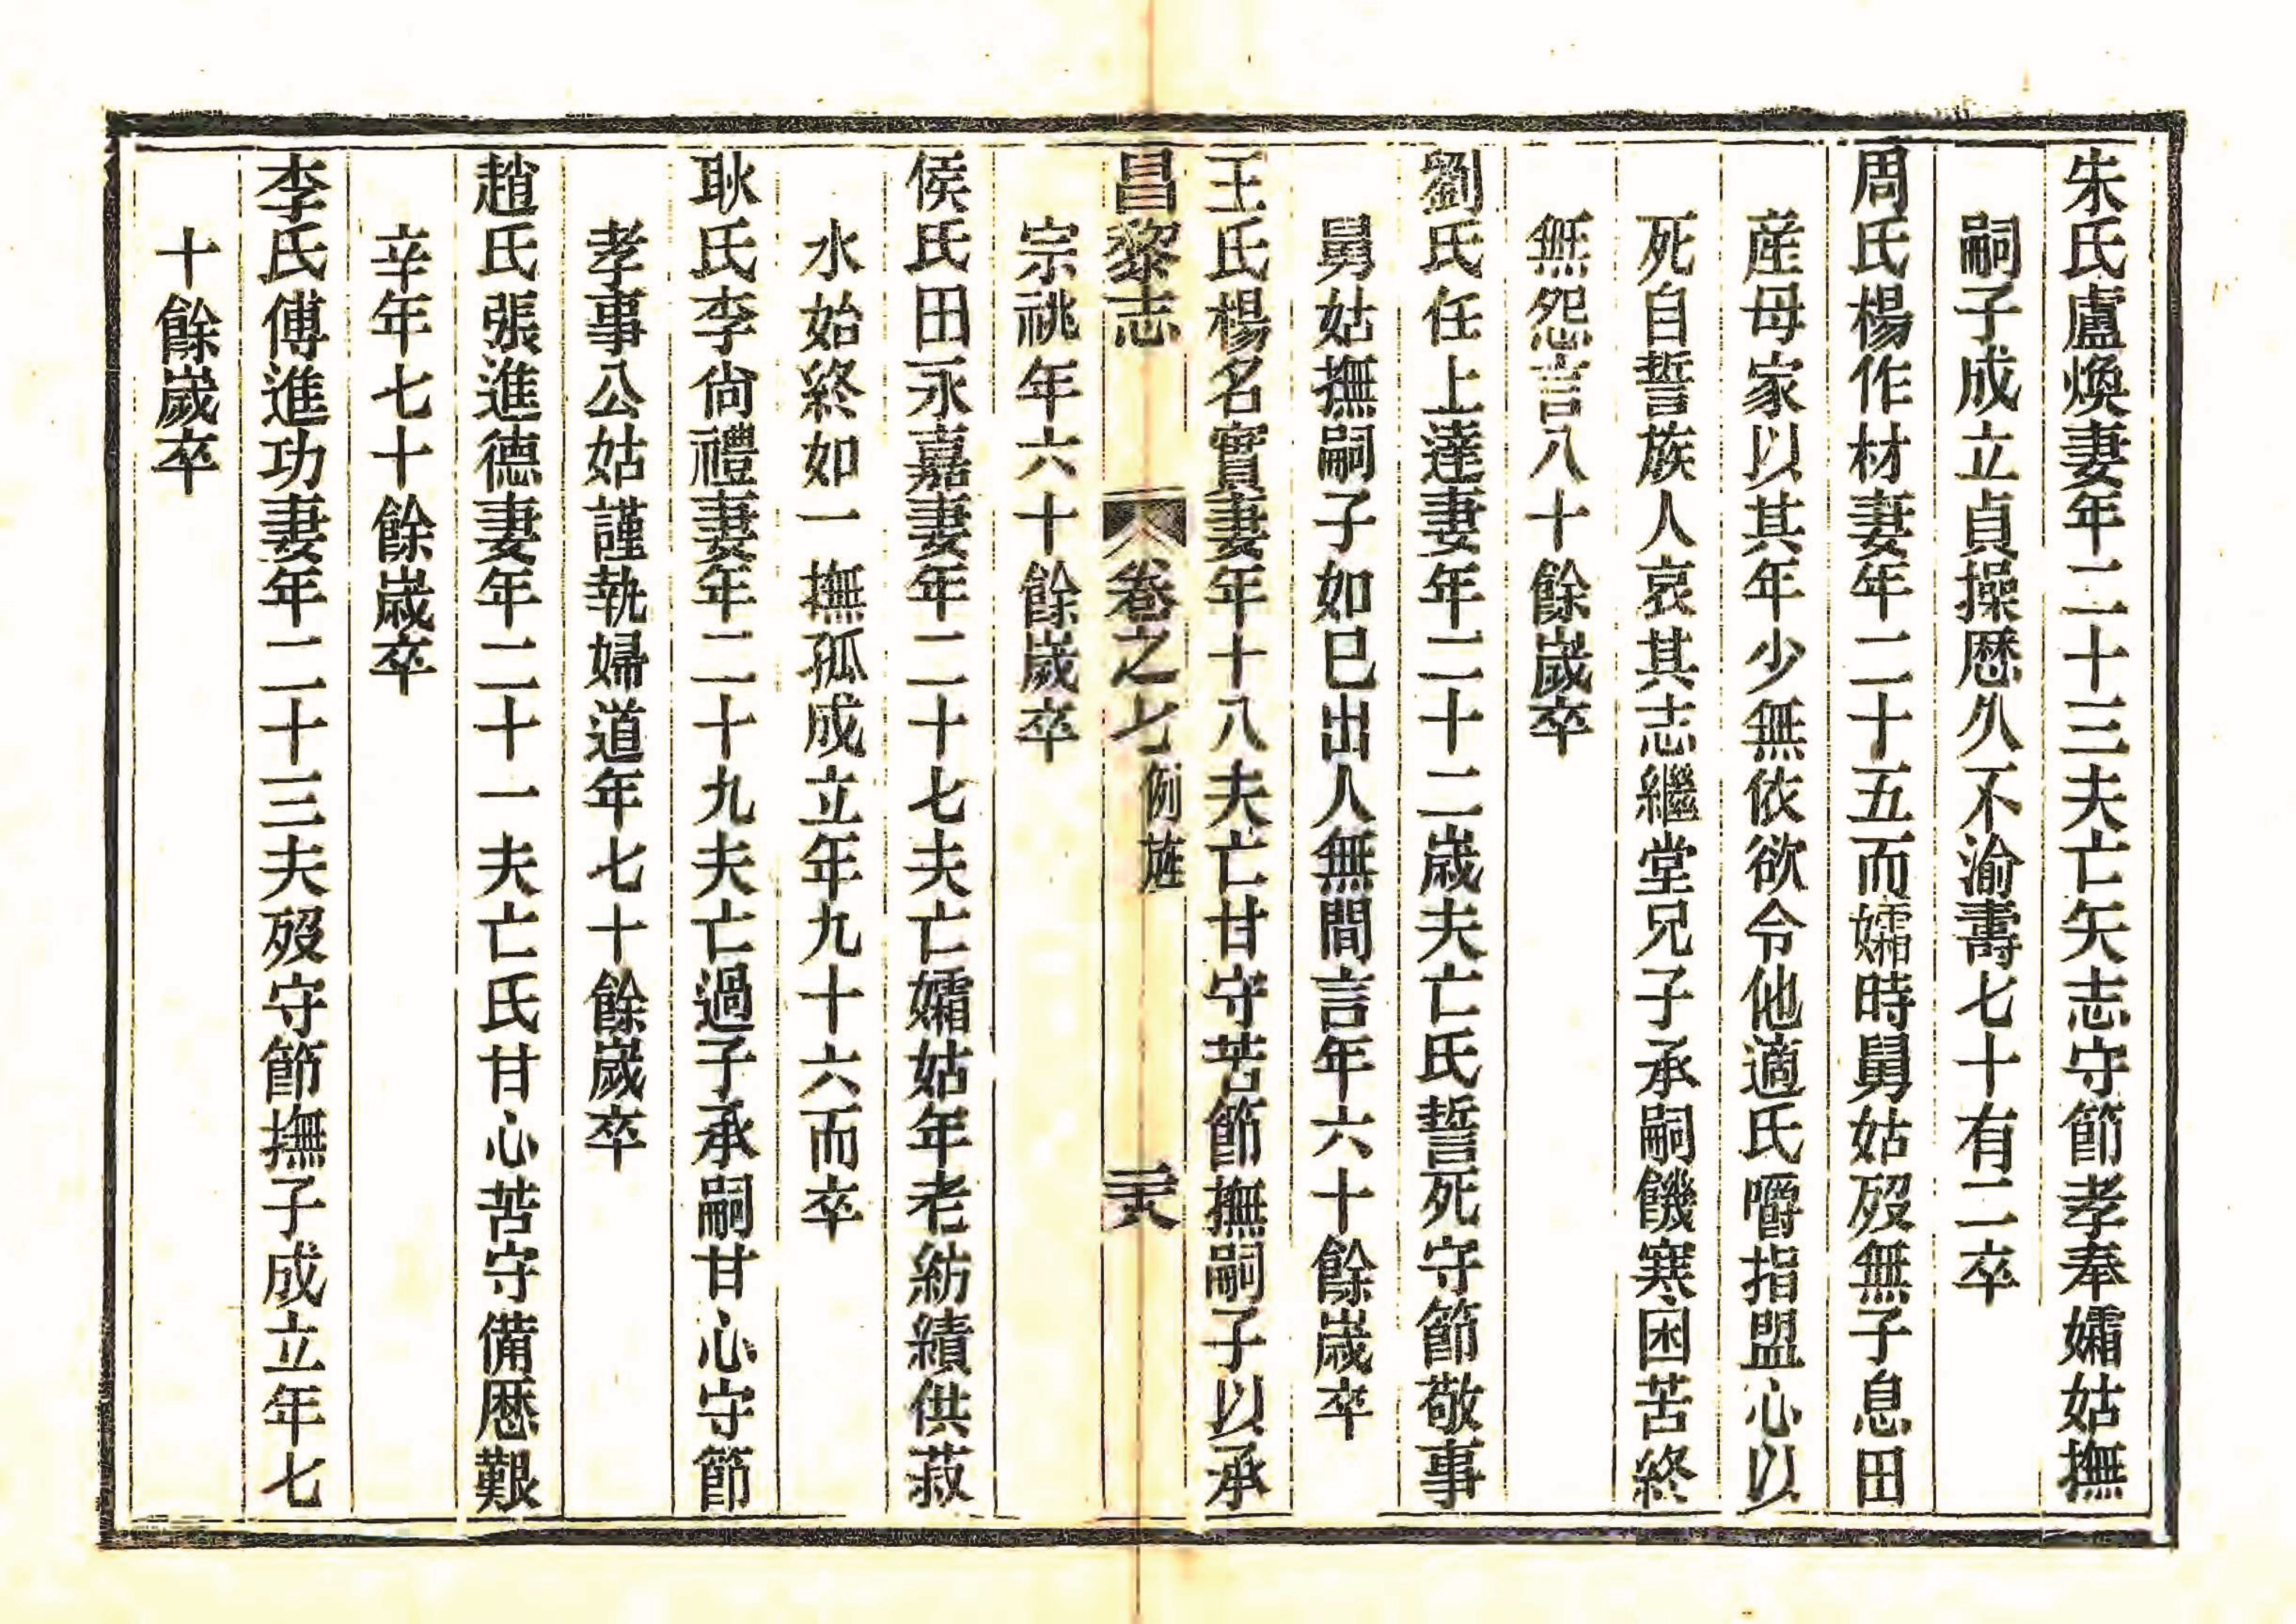 朱氏盧煥妻年二十三夫亡矢志守節孝奉孀姑撫
嗣子成立貞操歷久不渝壽七十有二卒
周氏楊作材妻年二十五而孀時舅姑歿無子息田
産母家以其年少無依欲令他適氏嚼指盟心以
死自誓族人哀其志繼堂兄子承嗣饑寒困苦終
無怨言八十餘歲卒
劉氏任上達妻年二十二歲夫亡氏誓死守節敬事
舅姑撫嗣子如巳出人無間言年六十餘歲卒
王氏楊名實妻年十八夫亡甘守苦節撫嗣子以承
宗祧年六十餘歲卒
昌黎志 卷之七 例旌 二十六
侯氏田永嘉妻年二十七夫亡孀姑年老紡績供菽
水始終如一撫孤成立年九十六而卒
耿氏李尙禮妻年二十九夫亡過子承嗣甘心守節
孝事公姑謹執婦道年七十餘歲卒
趙氏張進德妻年二十一夫亡氏甘心苦守備歷艱
辛年七十餘歲卒
李氏傅進功妻年二十三夫歿守節撫子成立年七
十餘歲卒